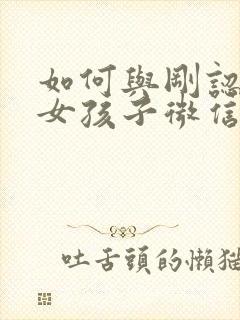 如何與剛認
女孩子微信
吐舌頭的懶貓